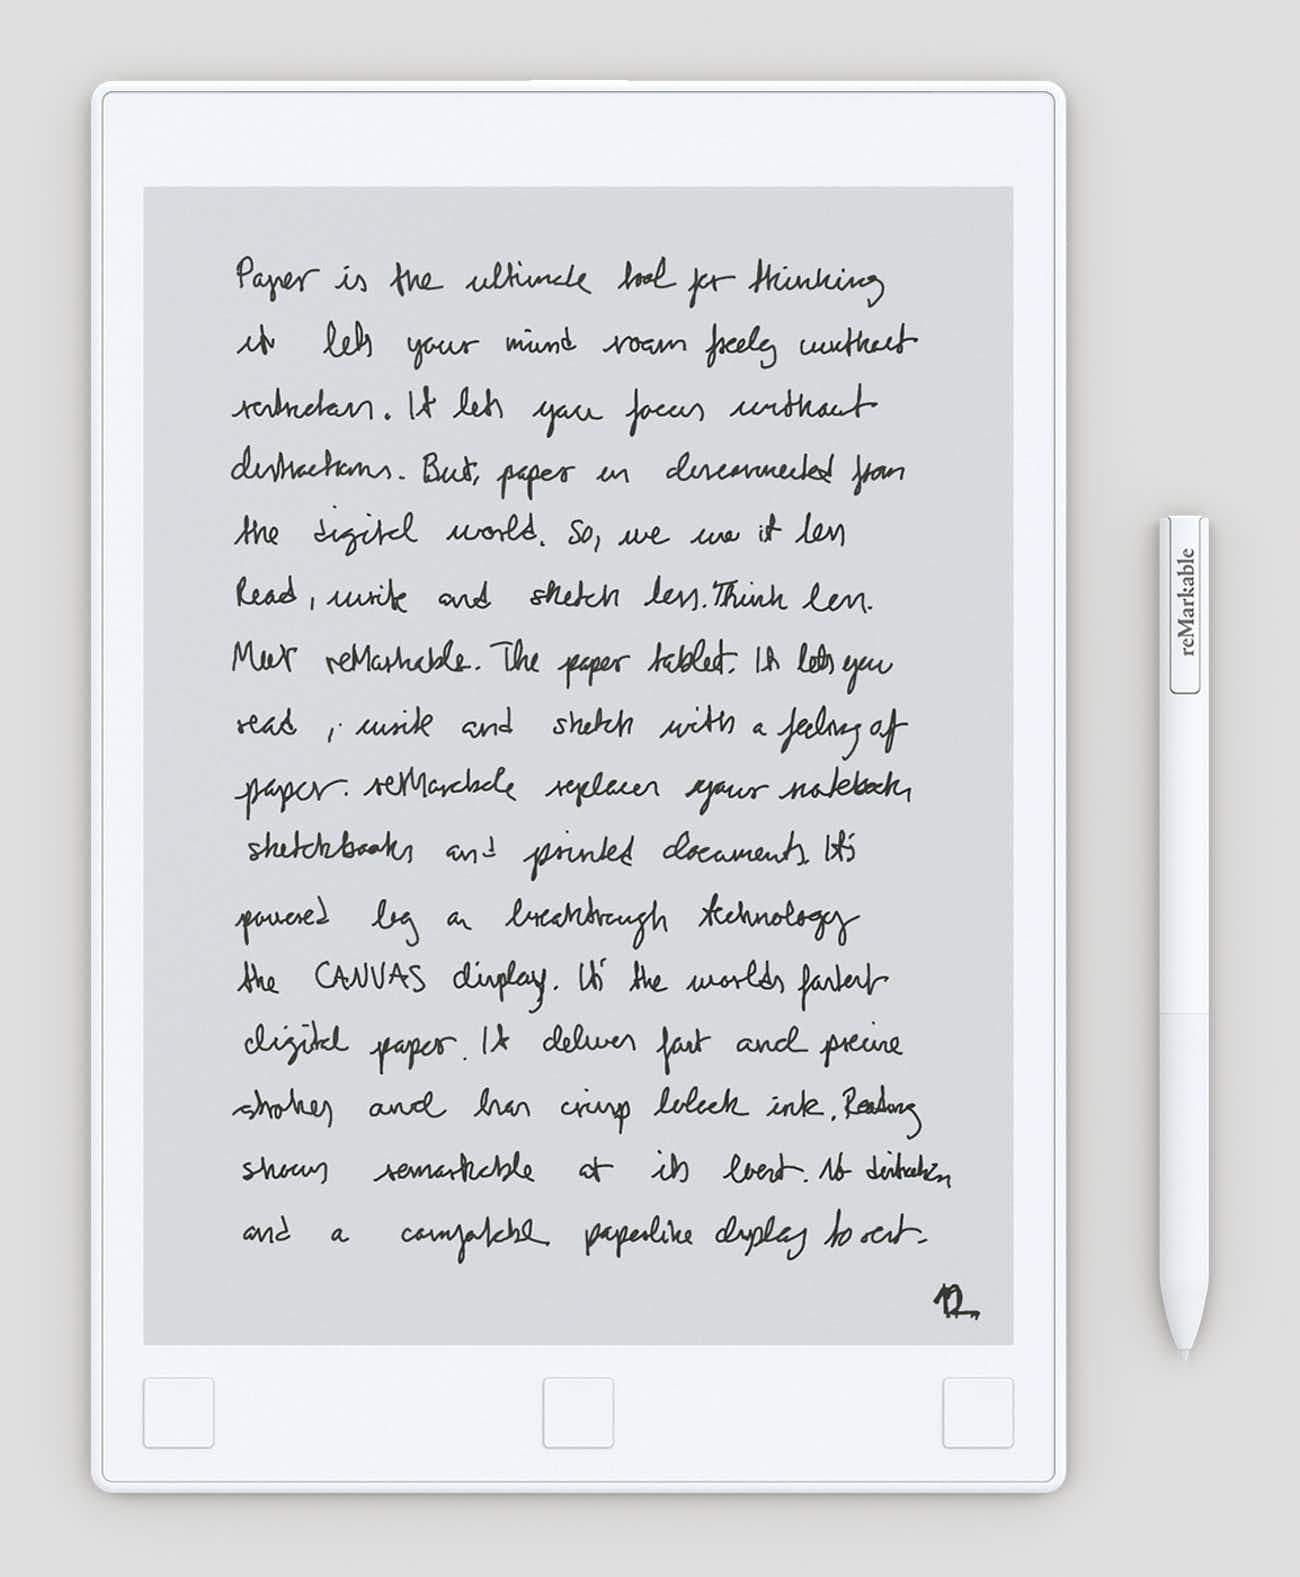 Paper is the ultimate tool for thinking
it lets your mind roam freely without
restrictions. It lets you focus without
distractions. But, paper is disconnected from
the digital world. So, we use it less
Read, write and sketch less. Think less.
Meet reMarkable. The paper tablet. It lets you
read, write and sketch with a feeling of
paper. reMarkable replaces your notebooks,
sketchbooks and printed documents. It's
powered by a breakthrough technology
the CANVAS display. It's the worlds fastest
digital paper. It delivers fast and precise
strokes and has crisp black ink. Reading
shows remarkable at its best. No distractions
and a comfortable paperlike display to rest.
reMarkable